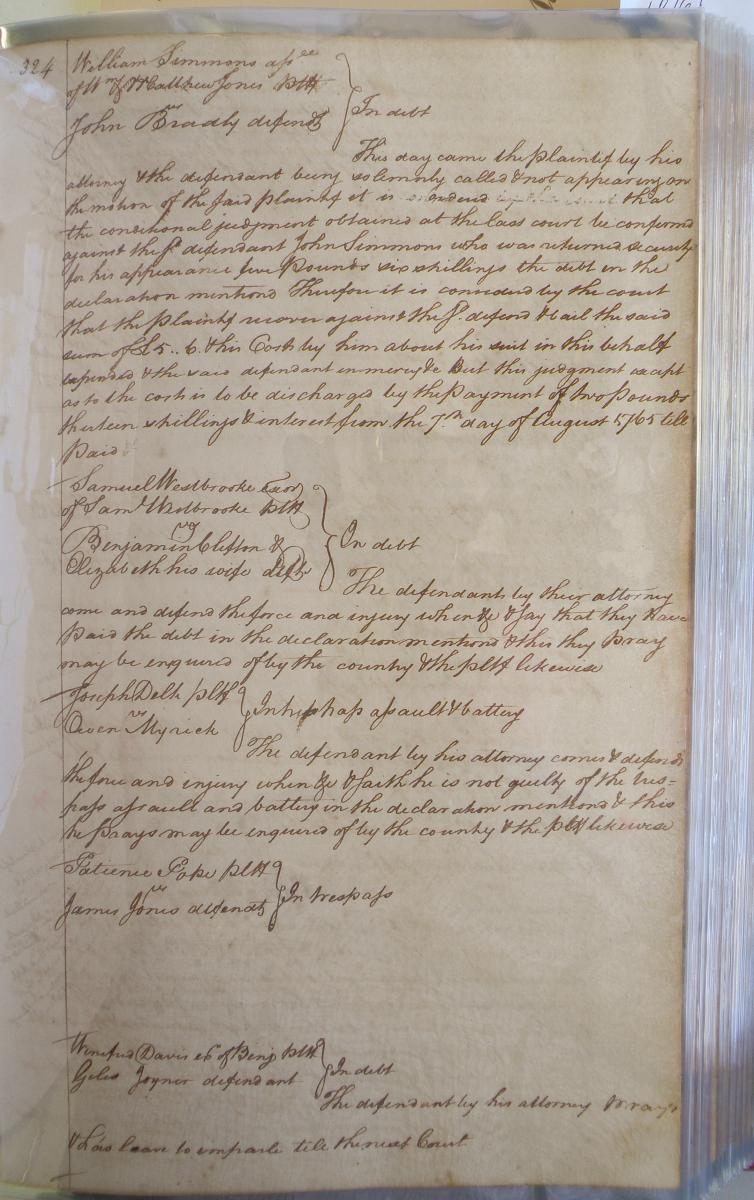 324
William Simmons assee
of Wm & Matthew Jones pltf
vs
John Bradly defendt
In debt
This day came the plaintif by his
attorney & the defendant being solemnly called & not appearing on
the motion of the said plaintif it is ordered that
the conditional judgment obtained at the last court be confirmed
against the sd defendant John Simmons who was returned security
for his appearance five Pounds six shillings the debt in the
declaration mentiond Therefore it is considered by the court
that the plaintif recover against the sd defend & bail the said
sum of £5..6. & his Costs by him about his suit in this behalf
expended & the said defendant in mercy &c But this judgment except
as to the costs is to be discharged by the Payment of two Pounds
thirteen shillings & interest from the 7th day of August 1765 till
Paid
Samuel Westbrooke Exor
of Saml Westbrooke pltf
vs
Benjamin Clifton &
Elizabeth his wife defts
In debt
The defendants by their attorney
come and defend the force and injury when &c & say that they have
Paid the debt in the declaration mentiond & this they Pray
may be enquired of by the country & the pltf likewise
Joseph Delk pltf
vs
Owen Myrick
In trespass assault & battery
The defendant by his attorney comes & defends
the force and injury when &c & saith he is not guilty of the tres=
pass assault and battery in the declaration mentiond & this
he Prays may be enquired of by the country & the pltf likewise
Patience Pope pltf
vs
James Jones defendt
In trespass
Winefred Davis ex of Benj pltf
Giles Joyner defendant
In debt
The defendant by his attorney Prays
& has leave to imparle till the next Court